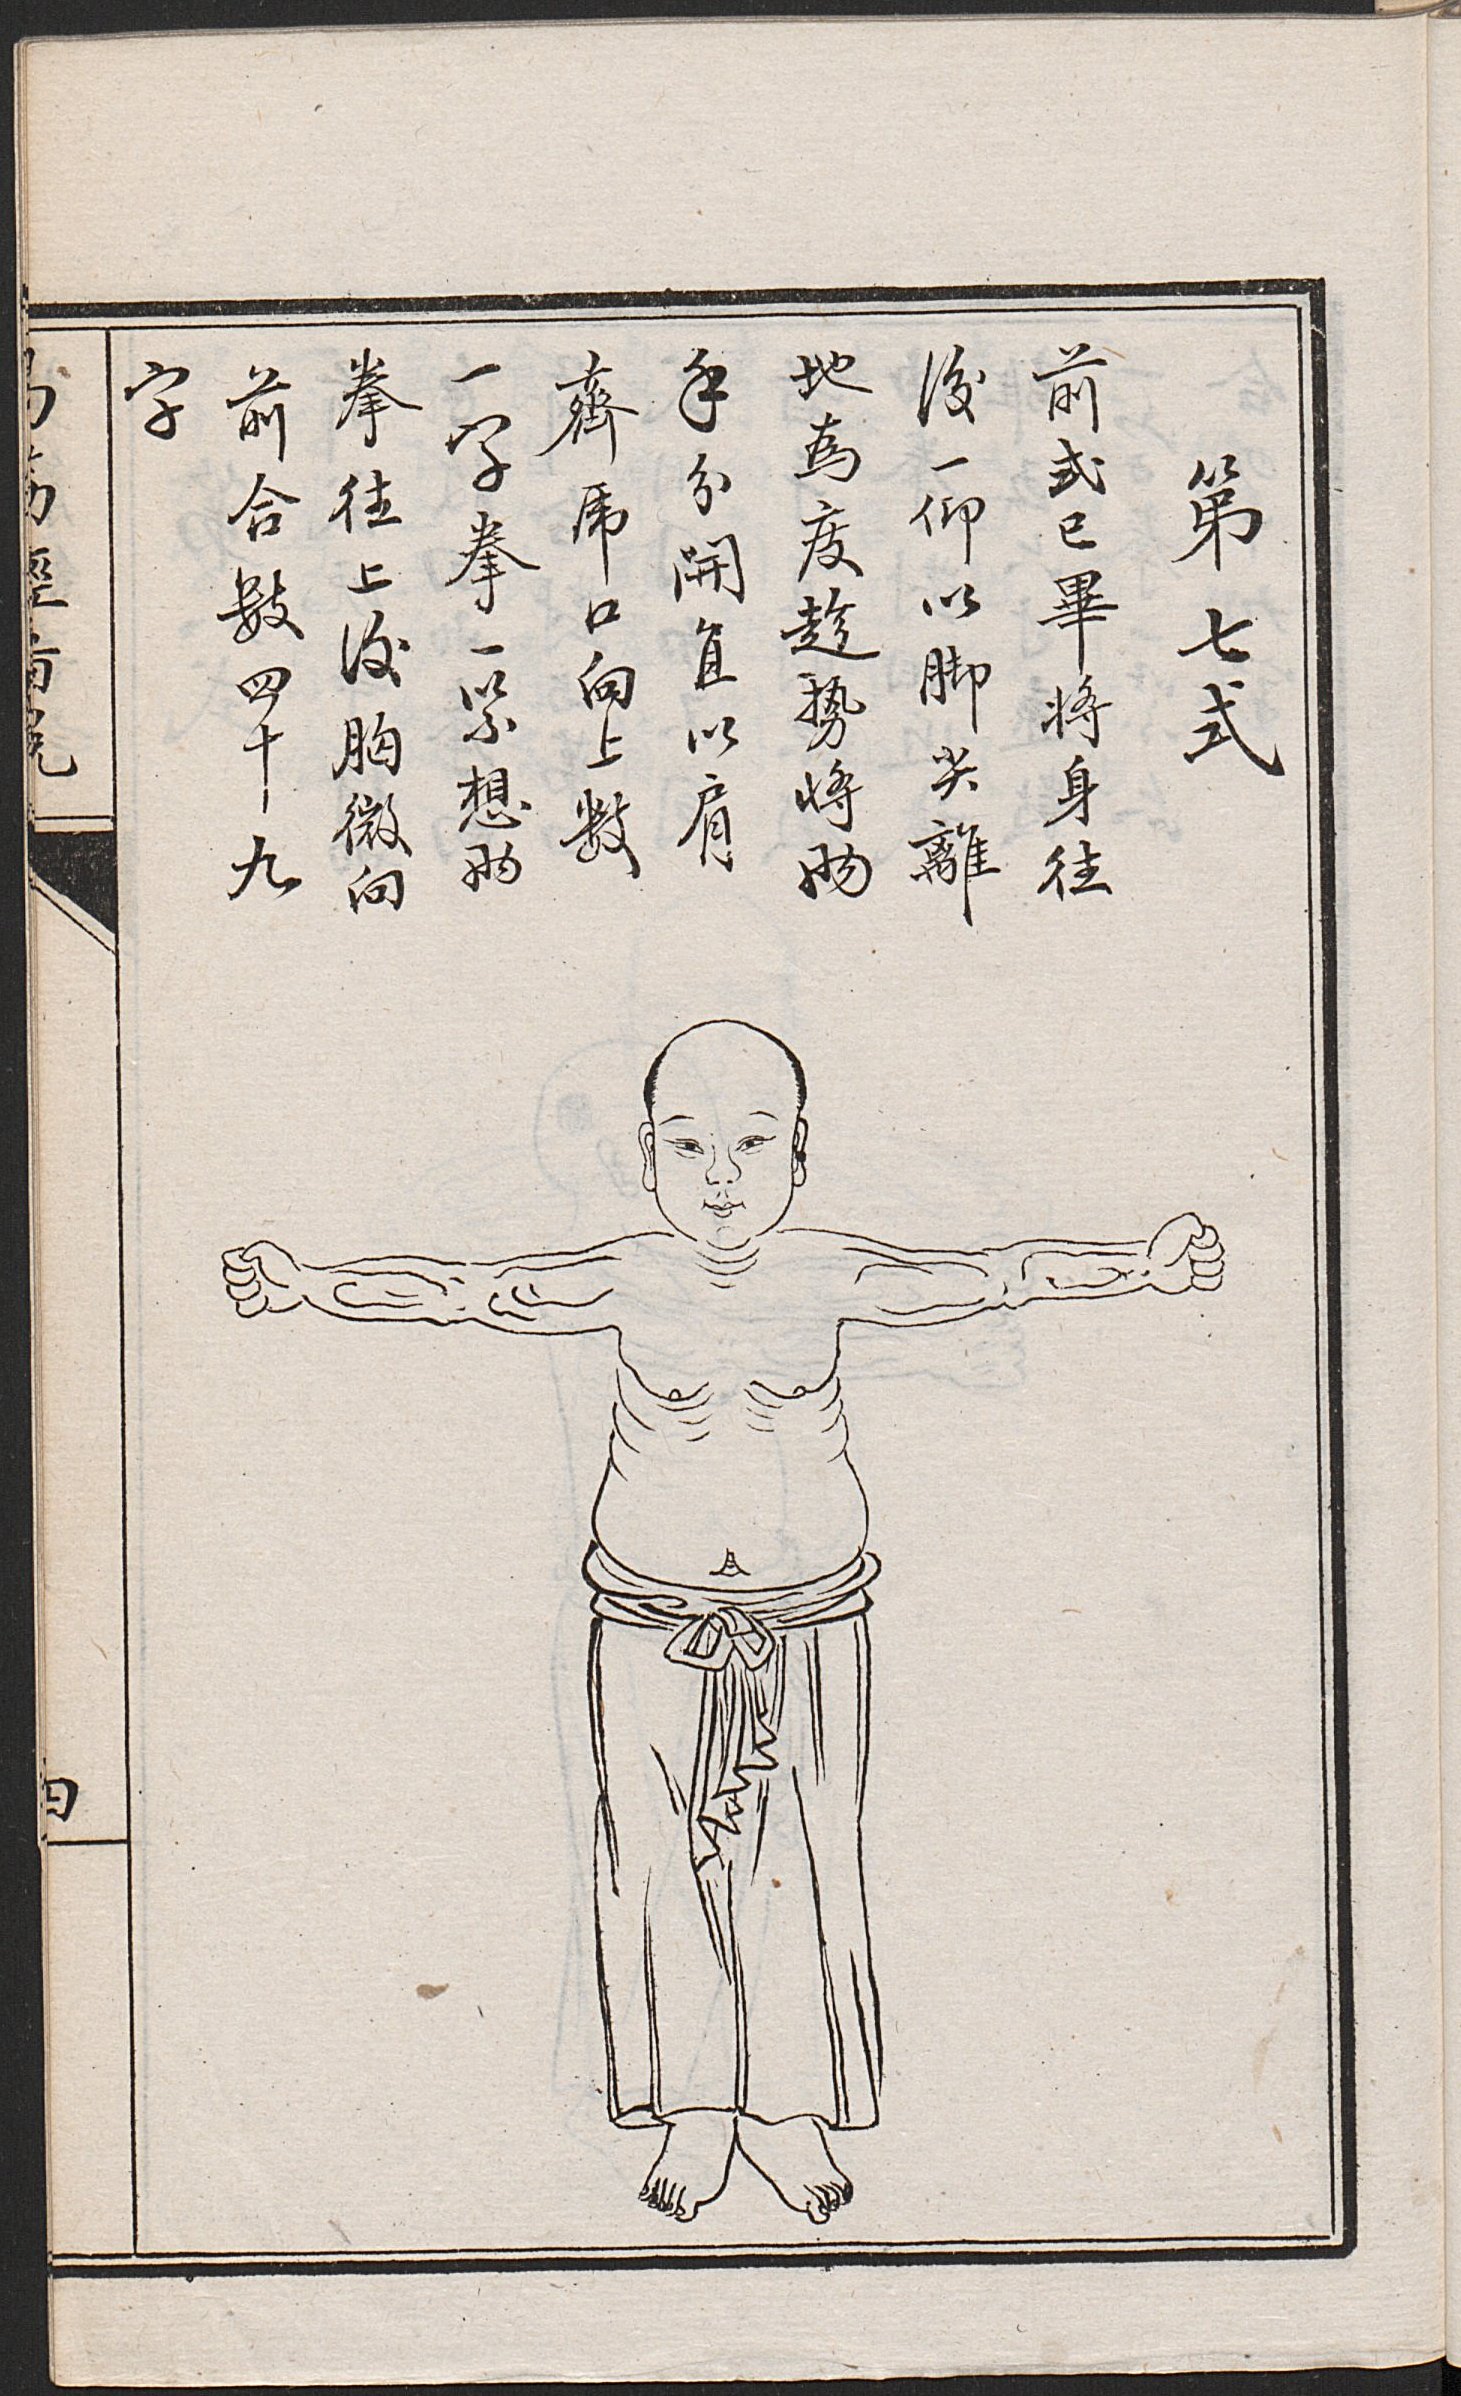 第七式
前式已畢將身往
後一仰以脚尖離
地為度趁勢將兩
手分開直以肩
齊虎口向上數
一字拳一緊想兩
拳往上後胸微向
前合數四十九
字